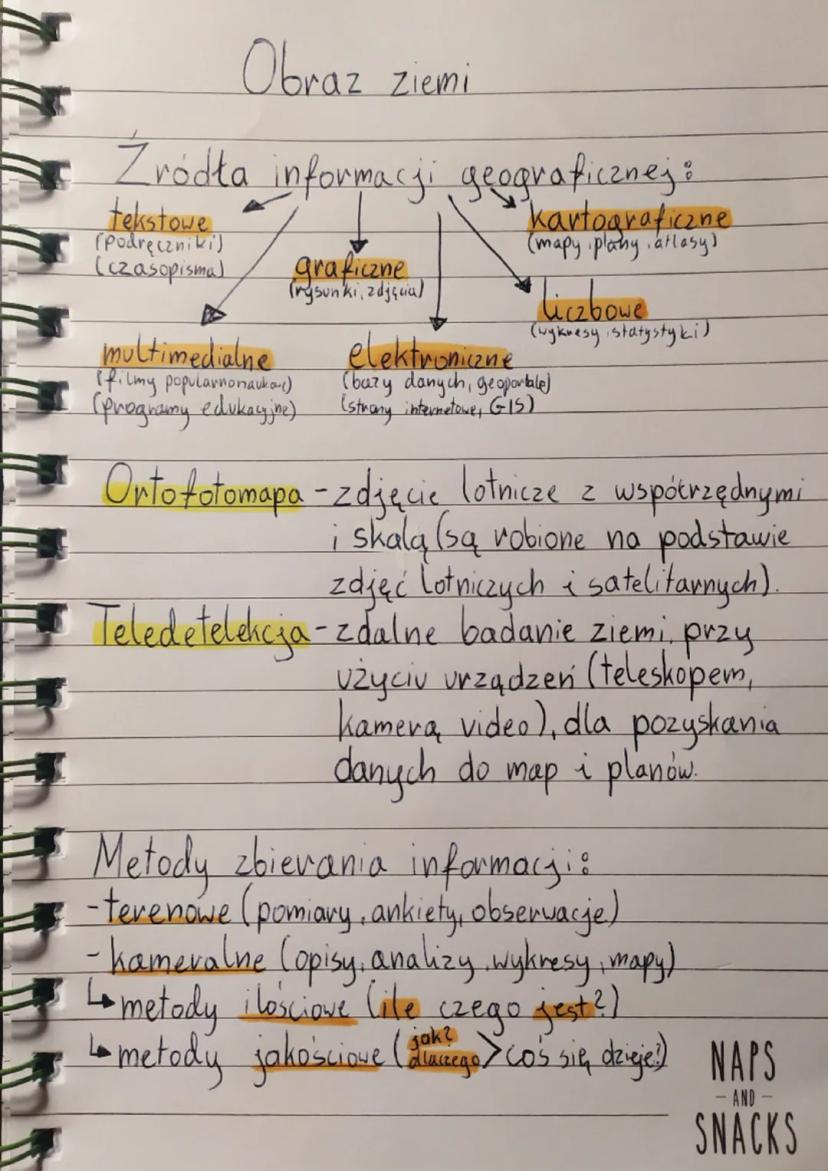 Obraz ziemi
Źródła informacji geograficznej:
tekstowe
(podręczniki)
(czasopisma)
graficzne
(rysunki, zdjęcia)
kartograficzne
(mapy, plany, atlasy)
liczbowe
(wykresy, statystyki)
multimedialne
(filmy popularnonaukowe)
(programy edukacyjne)
elektroniczne
(bazy danych, geoportale)
(strony internetowe, GIS)
Ortofotomapa - zdjęcie lotnicze z współrzędnymi
i skalą (są robione na podstawie
zdjęć lotniczych i satelitarnych).
Teledetelekcja - zdalne badanie ziemi, przy
użyciu urządzeń (teleskopem,
kamerą video), dla pozyskania
danych do map i planów.
Metody zbierania informacji:
- terenowe (pomiary, ankiety, obserwacje)
- kameralne (opisy, analizy, wykresy, mapy)
↳ metody ilościowe (ile czego jest?)
↳ metody jakościowe (jak? dlaczego > coś się dzieje?)
NAPS
- AND -
SNACKS